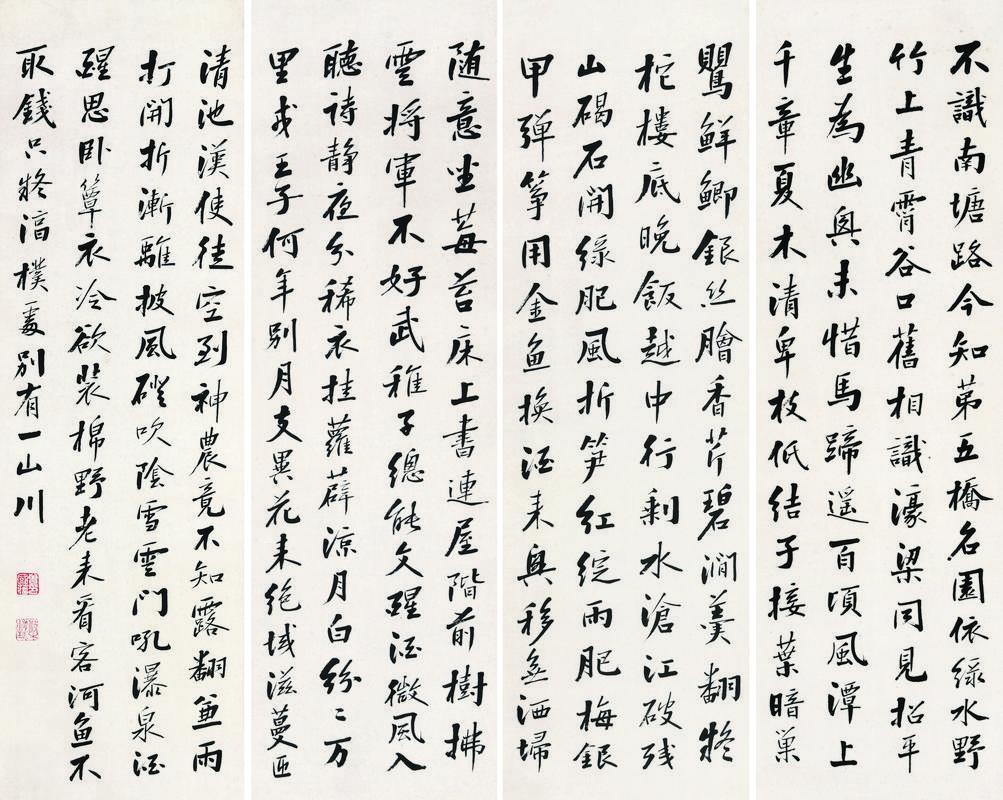 不識南塘路今知第五橋名園依綠水野
竹上青霄谷口舊相識濠梁同見招平
生為幽興未惜馬蹄遙百頃風潭上
千章夏木清卑枝低結子接葉暗巢
鸎鮮鯽銀絲膾香芹碧澗羹翻將
柁樓底晚飯越中行剩水滄江破殘
山碣石開綠肥風折笋紅綻雨肥梅銀
甲彈箏用金魚換酒來興移無洒埽
随意坐莓苔床上書連屋階前樹拂
雲將軍不好武稚子總能文醒酒微風入
聽詩静夜分稀衣挂蘿薜涼月白紛〻万
里戎王子何年別月支異花來絕域滋蔓匝
清池漢使徒空到神農竟不知露翻兼雨
打開折漸離披風磴吹陰雪雲門吼瀑泉酒
醒思卧簟衣冷欲裝棉野老來看客河魚不
取錢只將湻樸處別有一山川